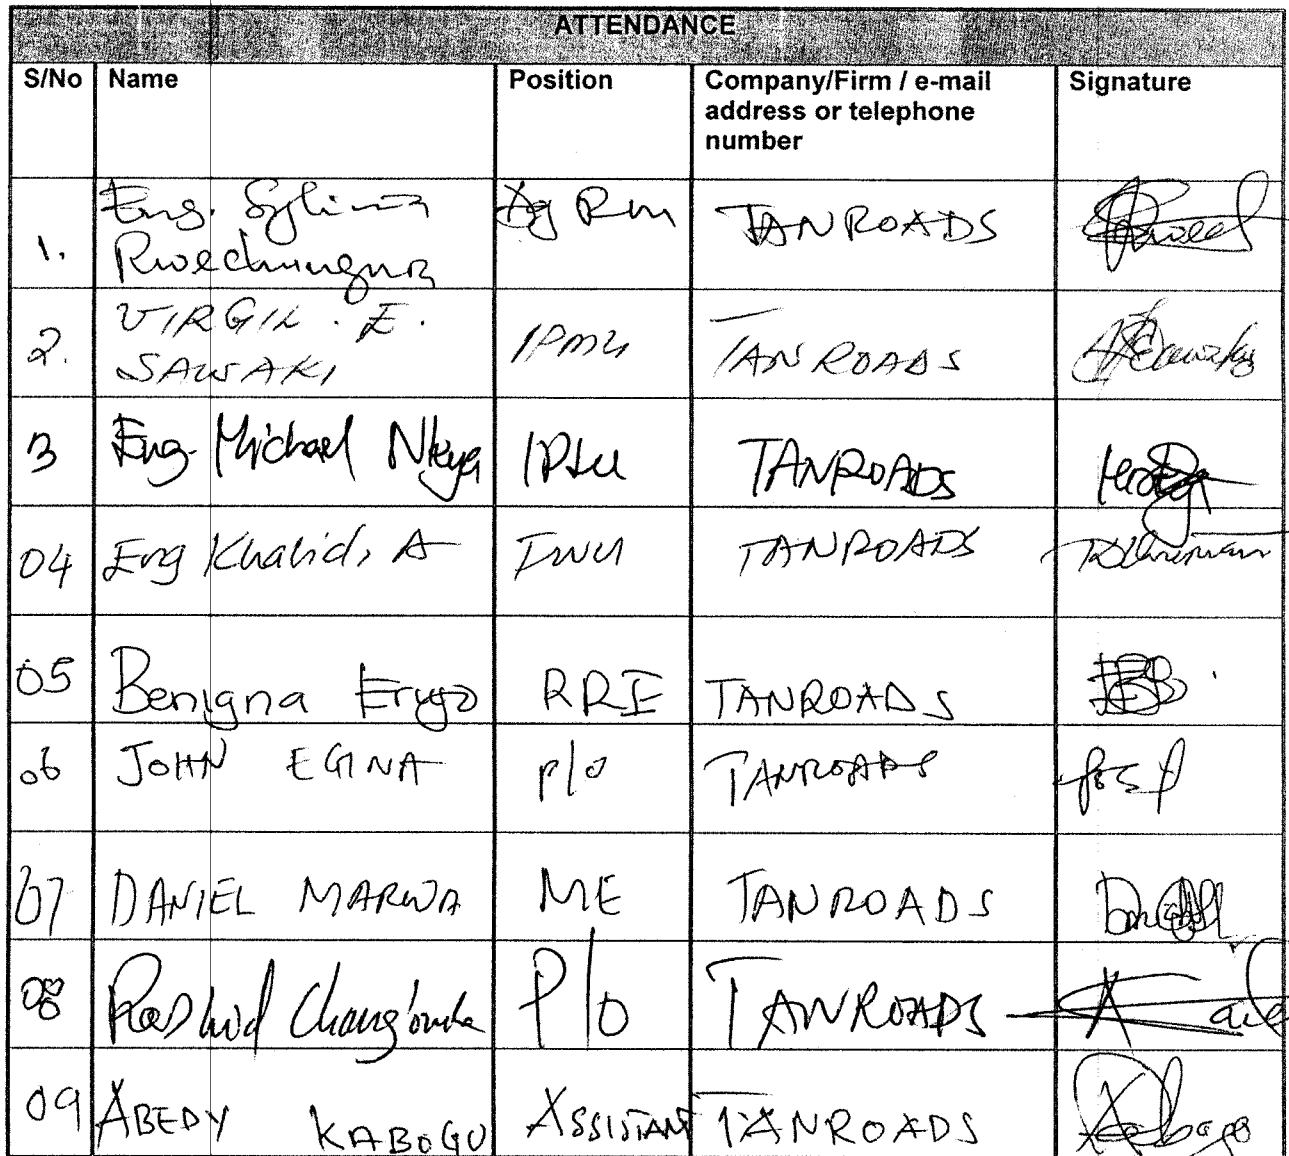 ATTENDANCE
S/No Name Position Company/Firm / e-mail address or telephone number Signature
1. Eng. Sylivia Ag Rm TANROADS
2. VIRGIL. E. SAWAKI IPMU TANROADS
3 Eng. Michael Nkya TANROADS
04 Eng Khalid, A TANROADS
05 Benigna RRE TANROADS
06 JOHN EGINA P/O TANROADS
07 DANIEL MARWA ME TANROADS
08 Rashid P/O TANROADS
09 ABEDY KABOGO ASSISTANT TANROADS